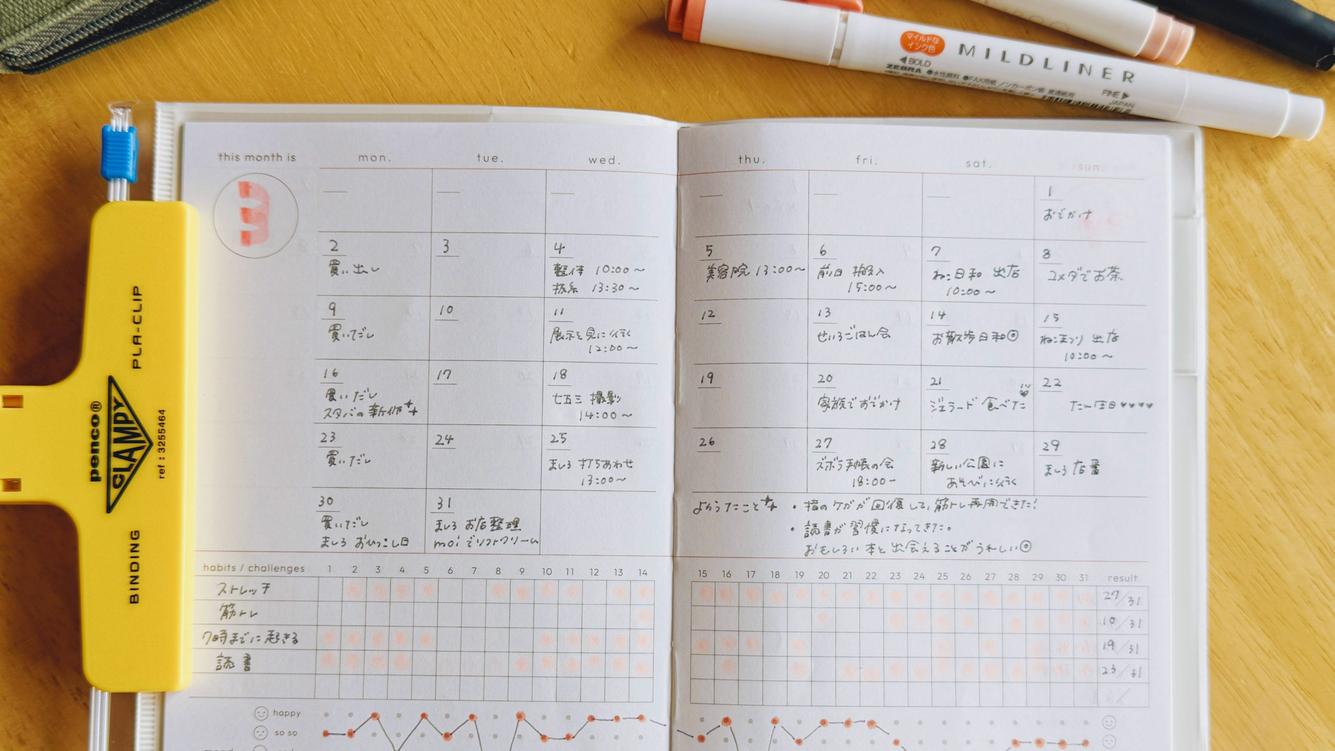 マイルドな
インク色
MILDLINER
◀BOLD
ZEBRA
FINE▶
JAPAN
penco®
CLAMPY
ref : 3255464
PLA-CLIP
BINDING
this month is
mon.
tue.
wed.
thu.
fri.
sat.
sun.
3
1
おでかけ
2
買い出し
3
4
軽作 10:00〜
抜糸 13:30〜
5
美容院 13:00〜
6
前日 搬入
15:00〜
7
ねこ日和 出店
10:00〜
8
コメダでお茶
9
買いだし
10
11
展示を見に行く
12:00〜
12
13
せいろごはん会
14
お散歩日和
15
ねこまつり 出店
10:00〜
16
買いだし
スタバの新作
17
18
七五三 撮影
14:00〜
19
20
家族でおでかけ
21
ジェラード 食べた
22
23
買いだし
24
25
ましろ 打ちあわせ
13:00〜
26
27
ズボラ手帳の会
18:00〜
28
新しい公園に
あそびに行く
29
ましろ 店番
30
買いだし
ましろ おひっこし日
31
ましろ お店整理
moiでソフトクリーム
よかったこと
・指のケガが回復して、筋トレ再開できた!
・読書が習慣になってきた。
おもしろい本と出会えることがうれしい
habits / challenges
1 2 3 4 5 6 7 8 9 10 11 12 13 14
15 16 17 18 19 20 21 22 23 24 25 26 27 28 29 30 31
result
ストレッチ
27/31
筋トレ
10/31
7時までに起きる
19/31
読書
23/31
happy
so so